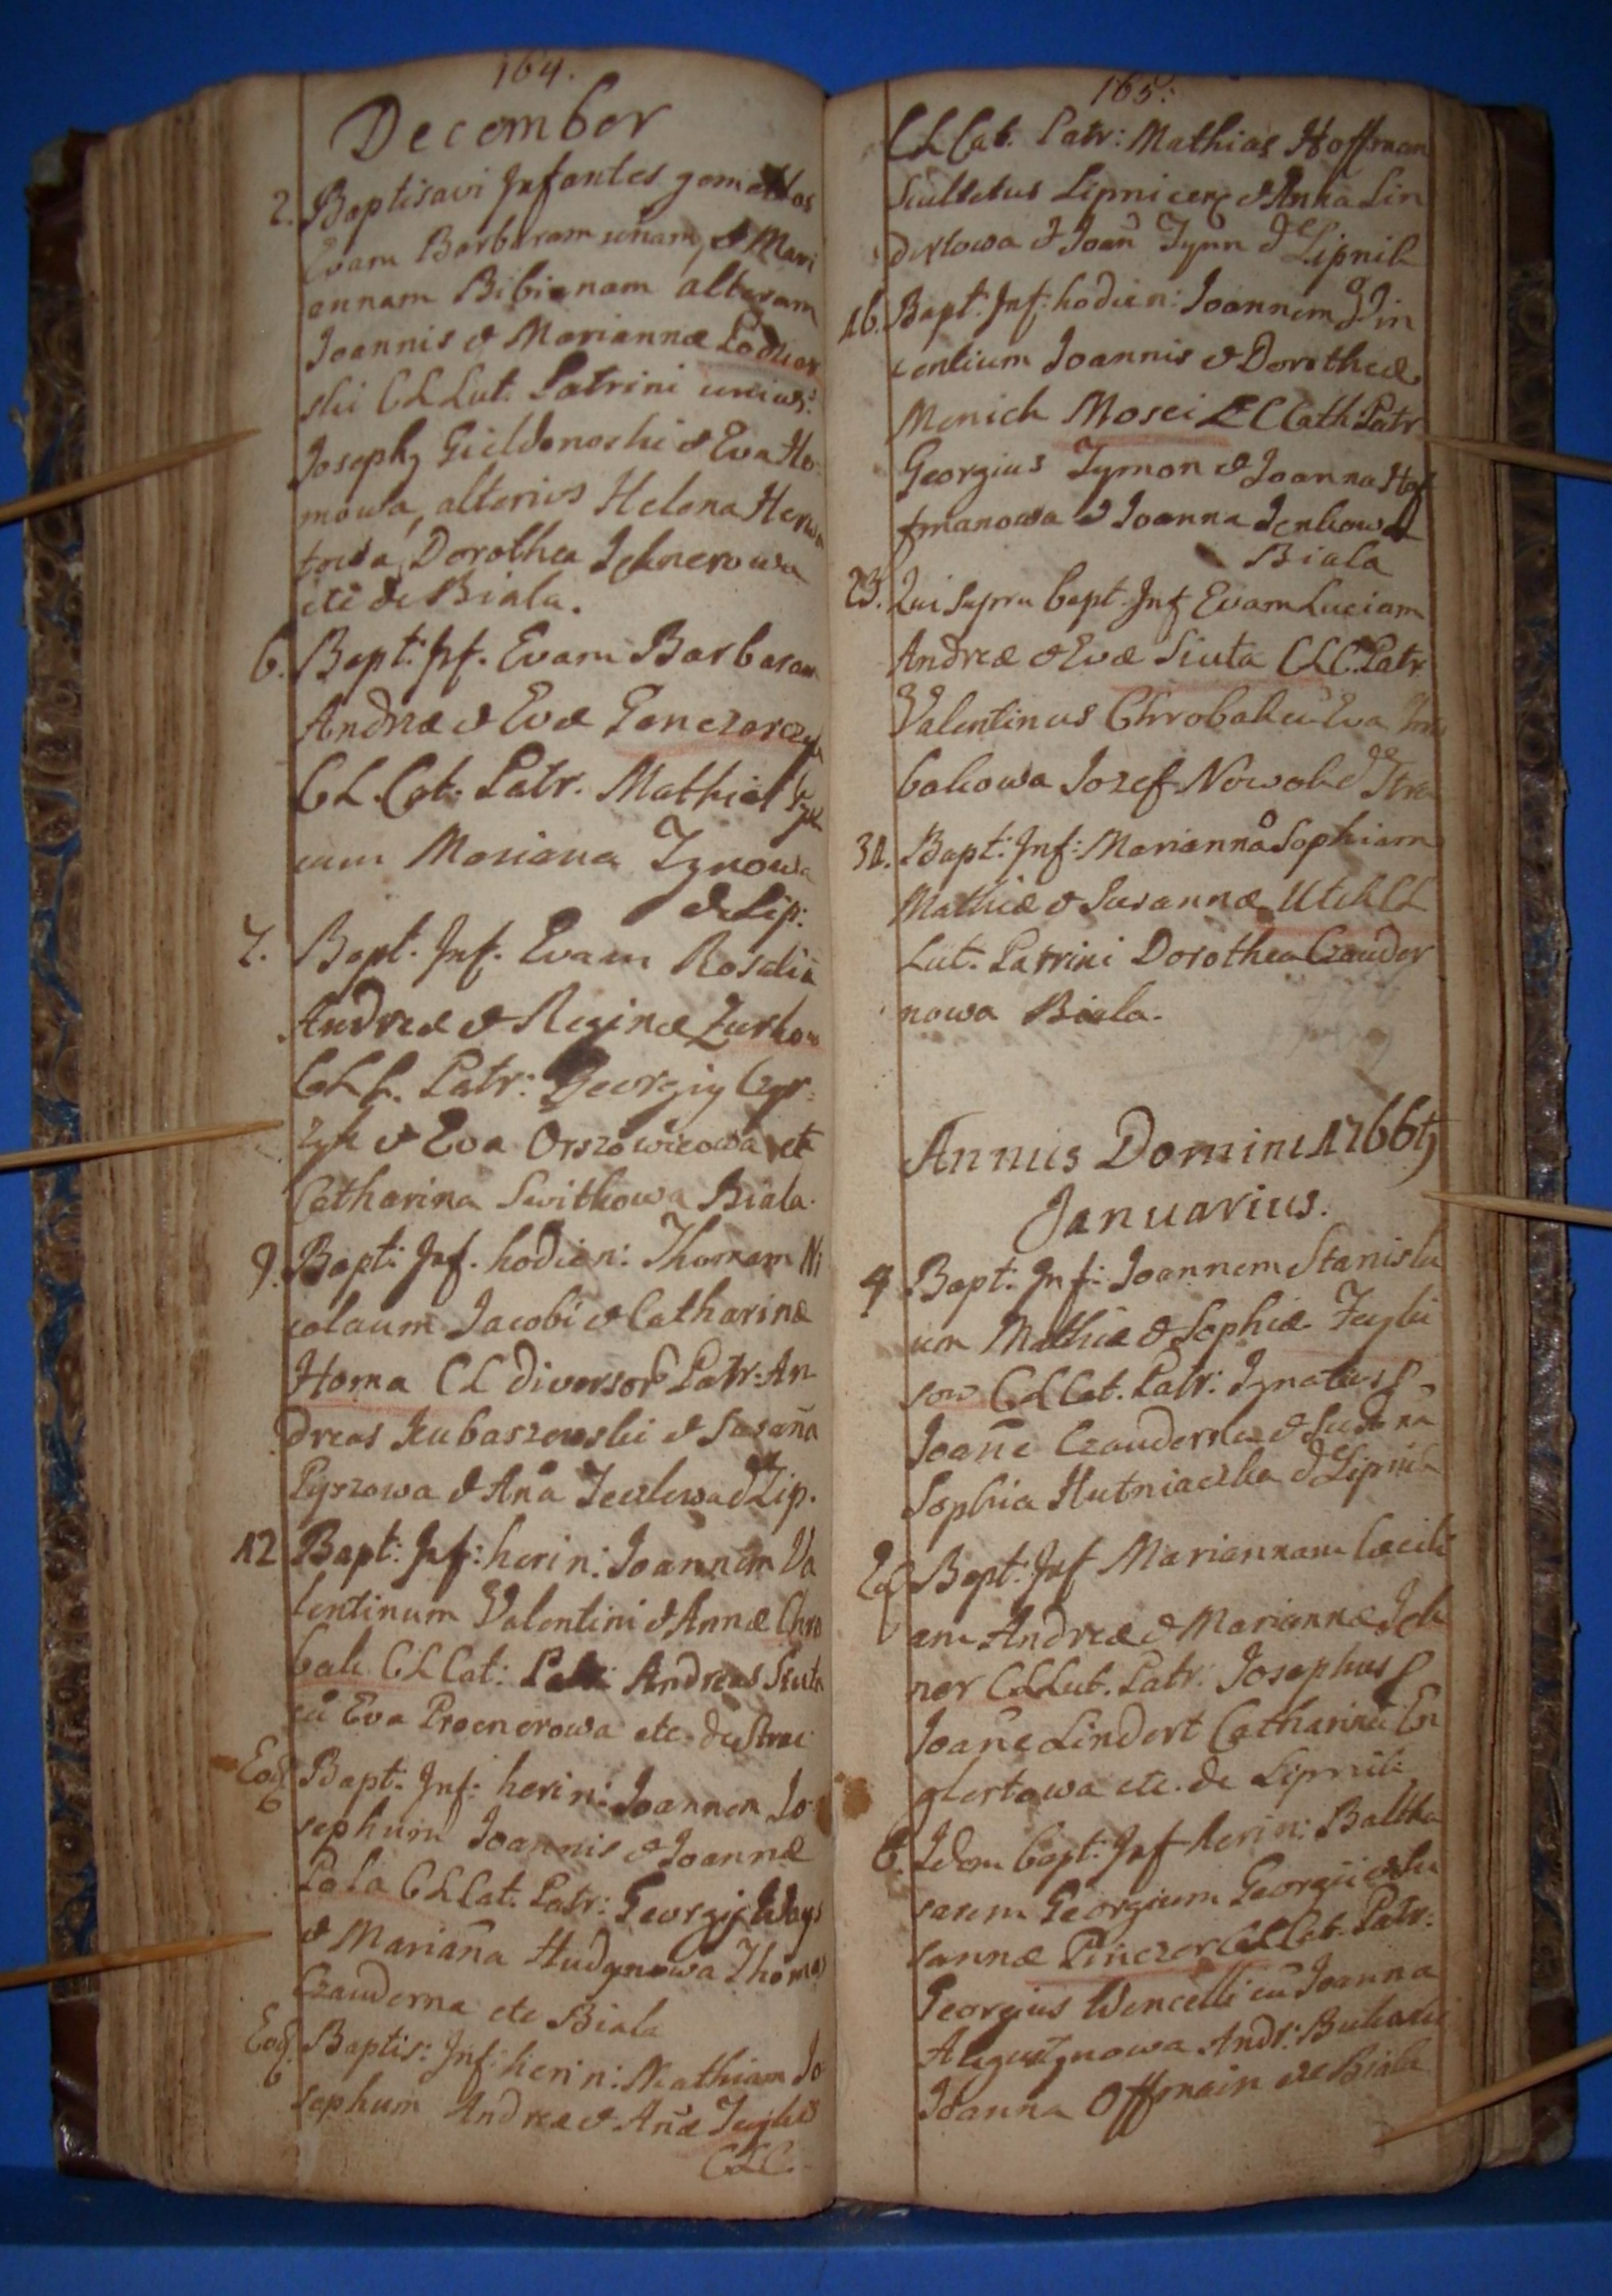 164.
December
2. Baptisavi Infantes gemellas
Evam Barbaram unam, & Mari
annam Bibianam alteram
Joannis & Mariannæ
ski CL Lut. Patrini unius:
Josephg Gieldonoski & Eva Ho
mowa, alterius Helena
Dorothea Jeknerowa
etc de Biala.
6. Bapt: Inf. Evam Barbaram
Andreæ & Evæ Gonczarczyk
CL Cat. Patr. Mathias
cum Mariana Tynowa
de Lip:
7. Bapt. Inf. Evam Rosalia
Andreæ & Reginæ Zurkow
CLL. Patr: Georgig Czyr
zyk & Eva Orszowicowa etc
Catharina Switkowa Biala.
9. Bapt: Inf. hodien: Thomam Ni
colaum Jacobi & Catharinæ
Homa CL diversor Patr: An
dreas Kubaszewski & Susana
Pyszowa & Ana d Lip.
12 Bapt: Inf: herin: Joannem Va
lentinum Valentini & Annæ Chro
bak CL Cat: Patr: Andreas Siuta
cu Eva Procnerowa etc. de Strac
Eod. Bapt: Inf: herin: Joannem Jo
sephum Joannis & Joannæ
Pala CL Cat. Patr: Georgig Ways
& Mariana Hudgnowa Thomas
Czauderna etc Biala
Eod. Baptis: Inf: herin: Mathiam Jo
sephum Andreæ & Anæ
CLC.
165:
CL Cat. Patr: Mathias Hoffman
Scultetus Lipnicens & Anna Lin
dertowa & Joan Tynn d Lipnik
16. Bapt: Inf: hodien: Joannem Vin
centium Joannis & Dorotheæ
Menich Mosci LC Cath: Patr
Georgius Tymon & Joanna Hof
fmanowa & Joanna Jenkowa d
Biala
23. Qui supra bapt. Inf Evam Luciam
Andreæ & Evæ Siuta CLC. Patr
Valentinus Chrobak cu Eva
bakowa Jozef Nowak d Stra
31. Bapt: Inf: Marianna Sophiam
Mathiæ & Susannæ Utek CL
Lut. Patrini Dorothea Czauder
nowa Biala.
Annus Domini 1766tg
Januarius.
4 Bapt: Inf: Joannem Stanisla
um Mathiæ & Sophiæ
sow CL Cat. Patr: Ignatius
Joane Czauderna & Susana
Sophia Hutniaczka d Lipnik
Eod Bapt: Inf Mariannam Cæcili
am Andreæ & Mariannæ Jek
ner CL Lut. Patr: Josephus
Joane Lindert Catharina En
glertowa etc. de Lipnik
6. Idem bapt: Inf herin: Baltha
sarem Georgium Georgii & Su
sannæ Piniczer CL Cat. Patr:
Georgius Wencelli cu Joanna
Augustynowa Andr: Bukacki
Joanna Offmain de Biala